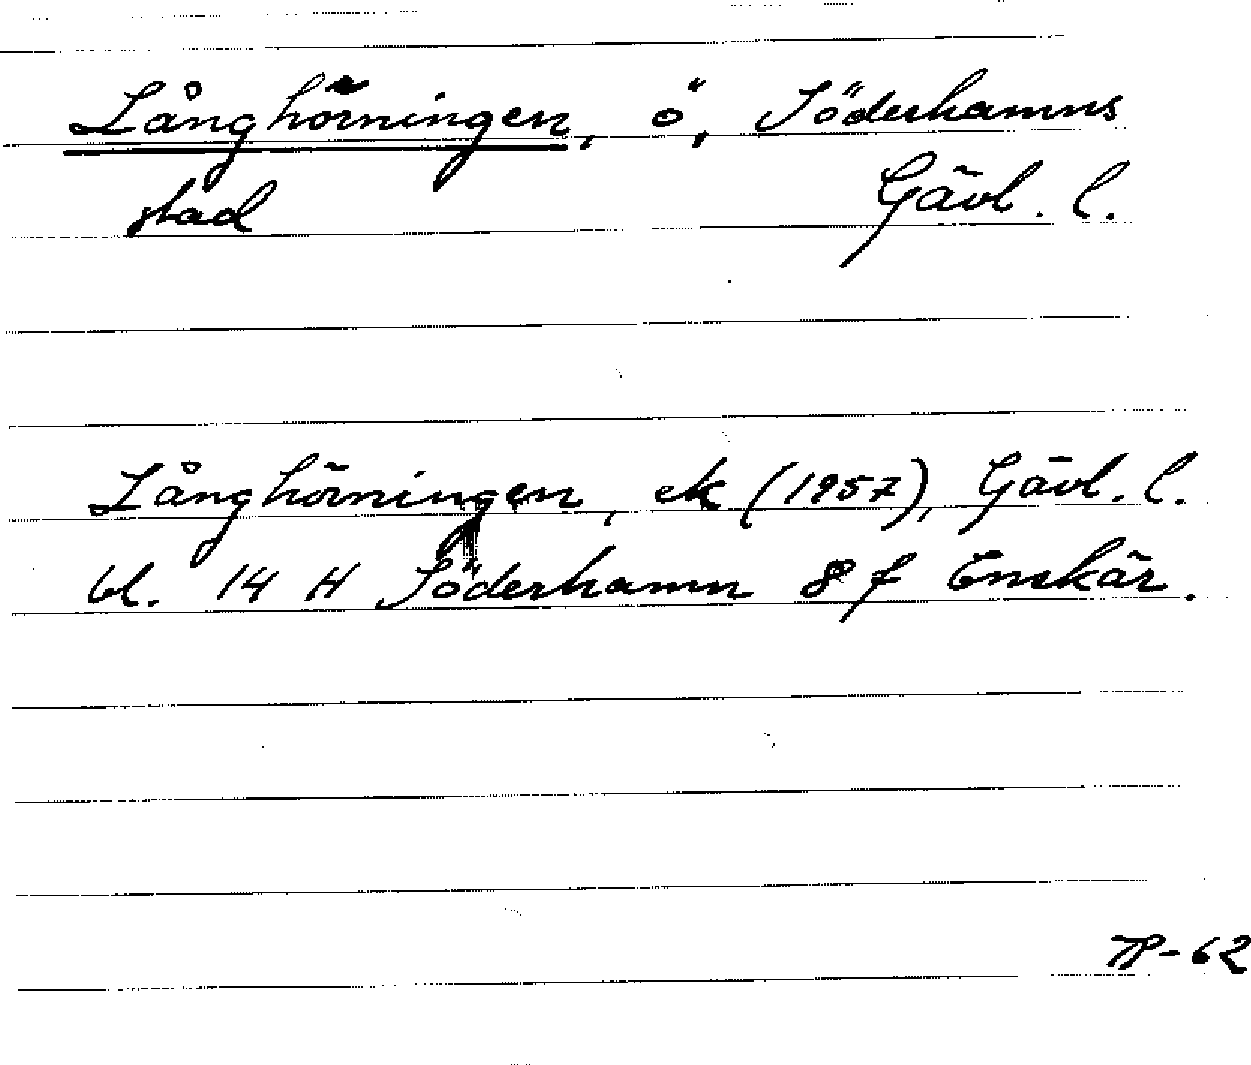 Långhörningen, ö, Söderhamns
stad Gävl. l.
Långhörningen, ek (1957), Gävl. l.
bl. 14 H Söderhamn 8 f Enskär.
-62